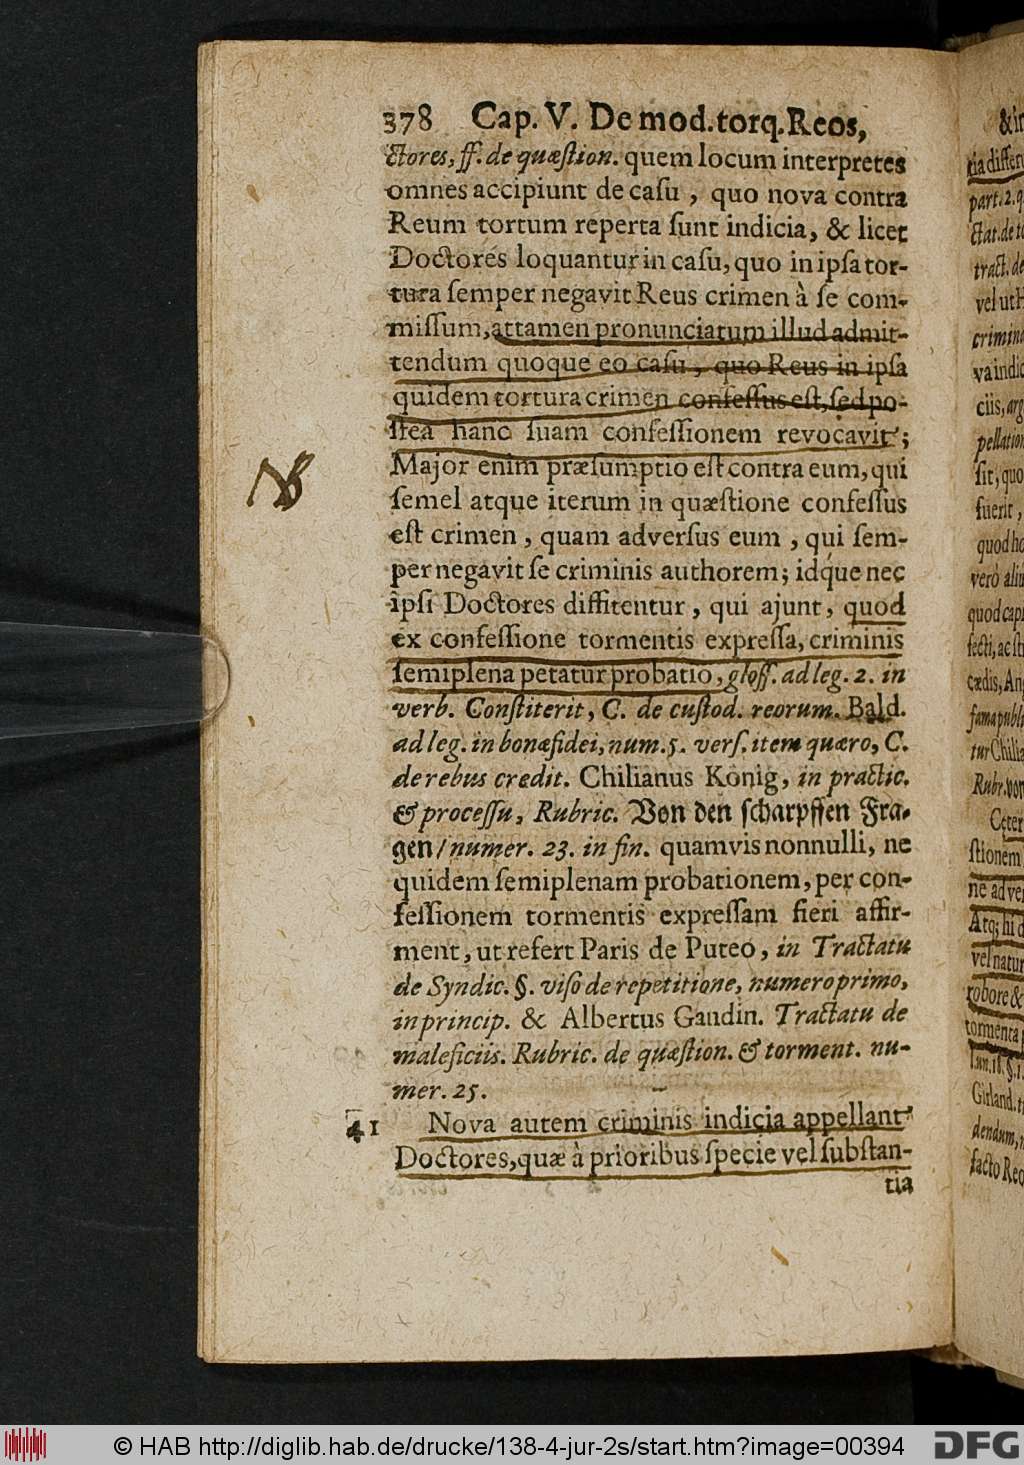 378 Cap. V. De mod. torq. Reos,
ctores, ff. de quæſtion. quem locum interpretes
omnes accipiunt de caſu, quo nova contra
Reum tortum reperta ſunt indicia, & licet
Doctores loquantur in caſu, quo in ipſa tor-
tura ſemper negavit Reus crimen à ſe com-
miſſum, attamen pronunciatum illud admit-
tendum quoque eo caſu, quo Reus in ipſa
quidem tortura crimen confeſſus eſt, ſed po-
ſtea hanc ſuam confeſſionem revocavit;
Major enim præſumptio eſt contra eum, qui
ſemel atque iterum in quæſtione confeſſus
eſt crimen, quam adverſus eum, qui ſem-
per negavit ſe criminis authorem; idq́ue nec
ipſi Doctores diffitentur, qui ajunt, quod
ex confeſſione tormentis expreſſa, criminis
ſemiplena petatur probatio, gloſſ. ad leg. 2. in
verb. Conſtiterit, C. de cuſtod. reorum. Bald.
ad leg. in bonæ fidei, num. 5. verſ. item quæro, C.
de rebus credit. Chilianus König, in practic.
& proceſſu, Rubric. Von den ſcharpffen Fra-
gen / numer. 23. in fin. quamvis nonnulli, ne
quidem ſemiplenam probationem, per con-
feſſionem tormentis expreſſam fieri affir-
ment, ut refert Paris de Puteo, in Tractatu
de Syndic. §. viſo de repetitione, numero primo,
in princip. & Albertus Gandin. Tractatu de
maleficiis. Rubric. de quæſtion. & torment. nu-
mer. 25.
41 Nova autem criminis indicia appellant
Doctores, quæ à prioribus ſpecie vel ſubſtan-
tia
NB
© HAB http://diglib.hab.de/drucke/138-4-jur-2s/start.htm?image=00394
DFG